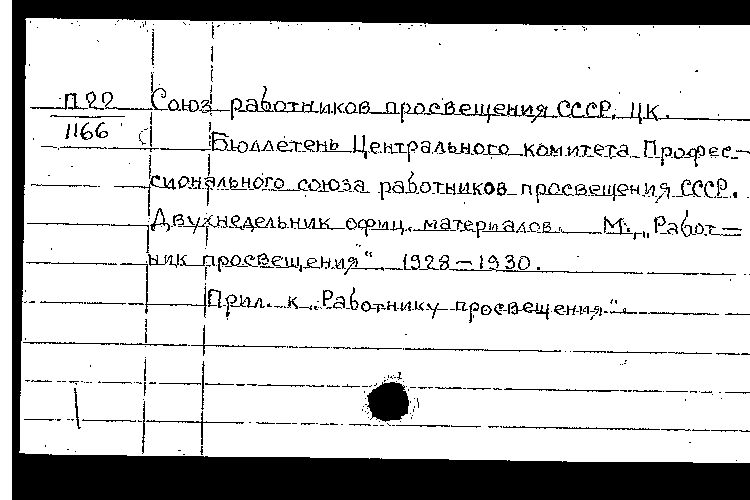 П22
1166
Союз работников просвещения СССР. ЦК.
Бюллетень Центрального комитета Профес-
сионального союза работников просвещения СССР.
Двухнедельник офиц. материалов. М., „Работ-
ник просвещения“. 1928-1930.
Прил. к „Работнику просвещения“.